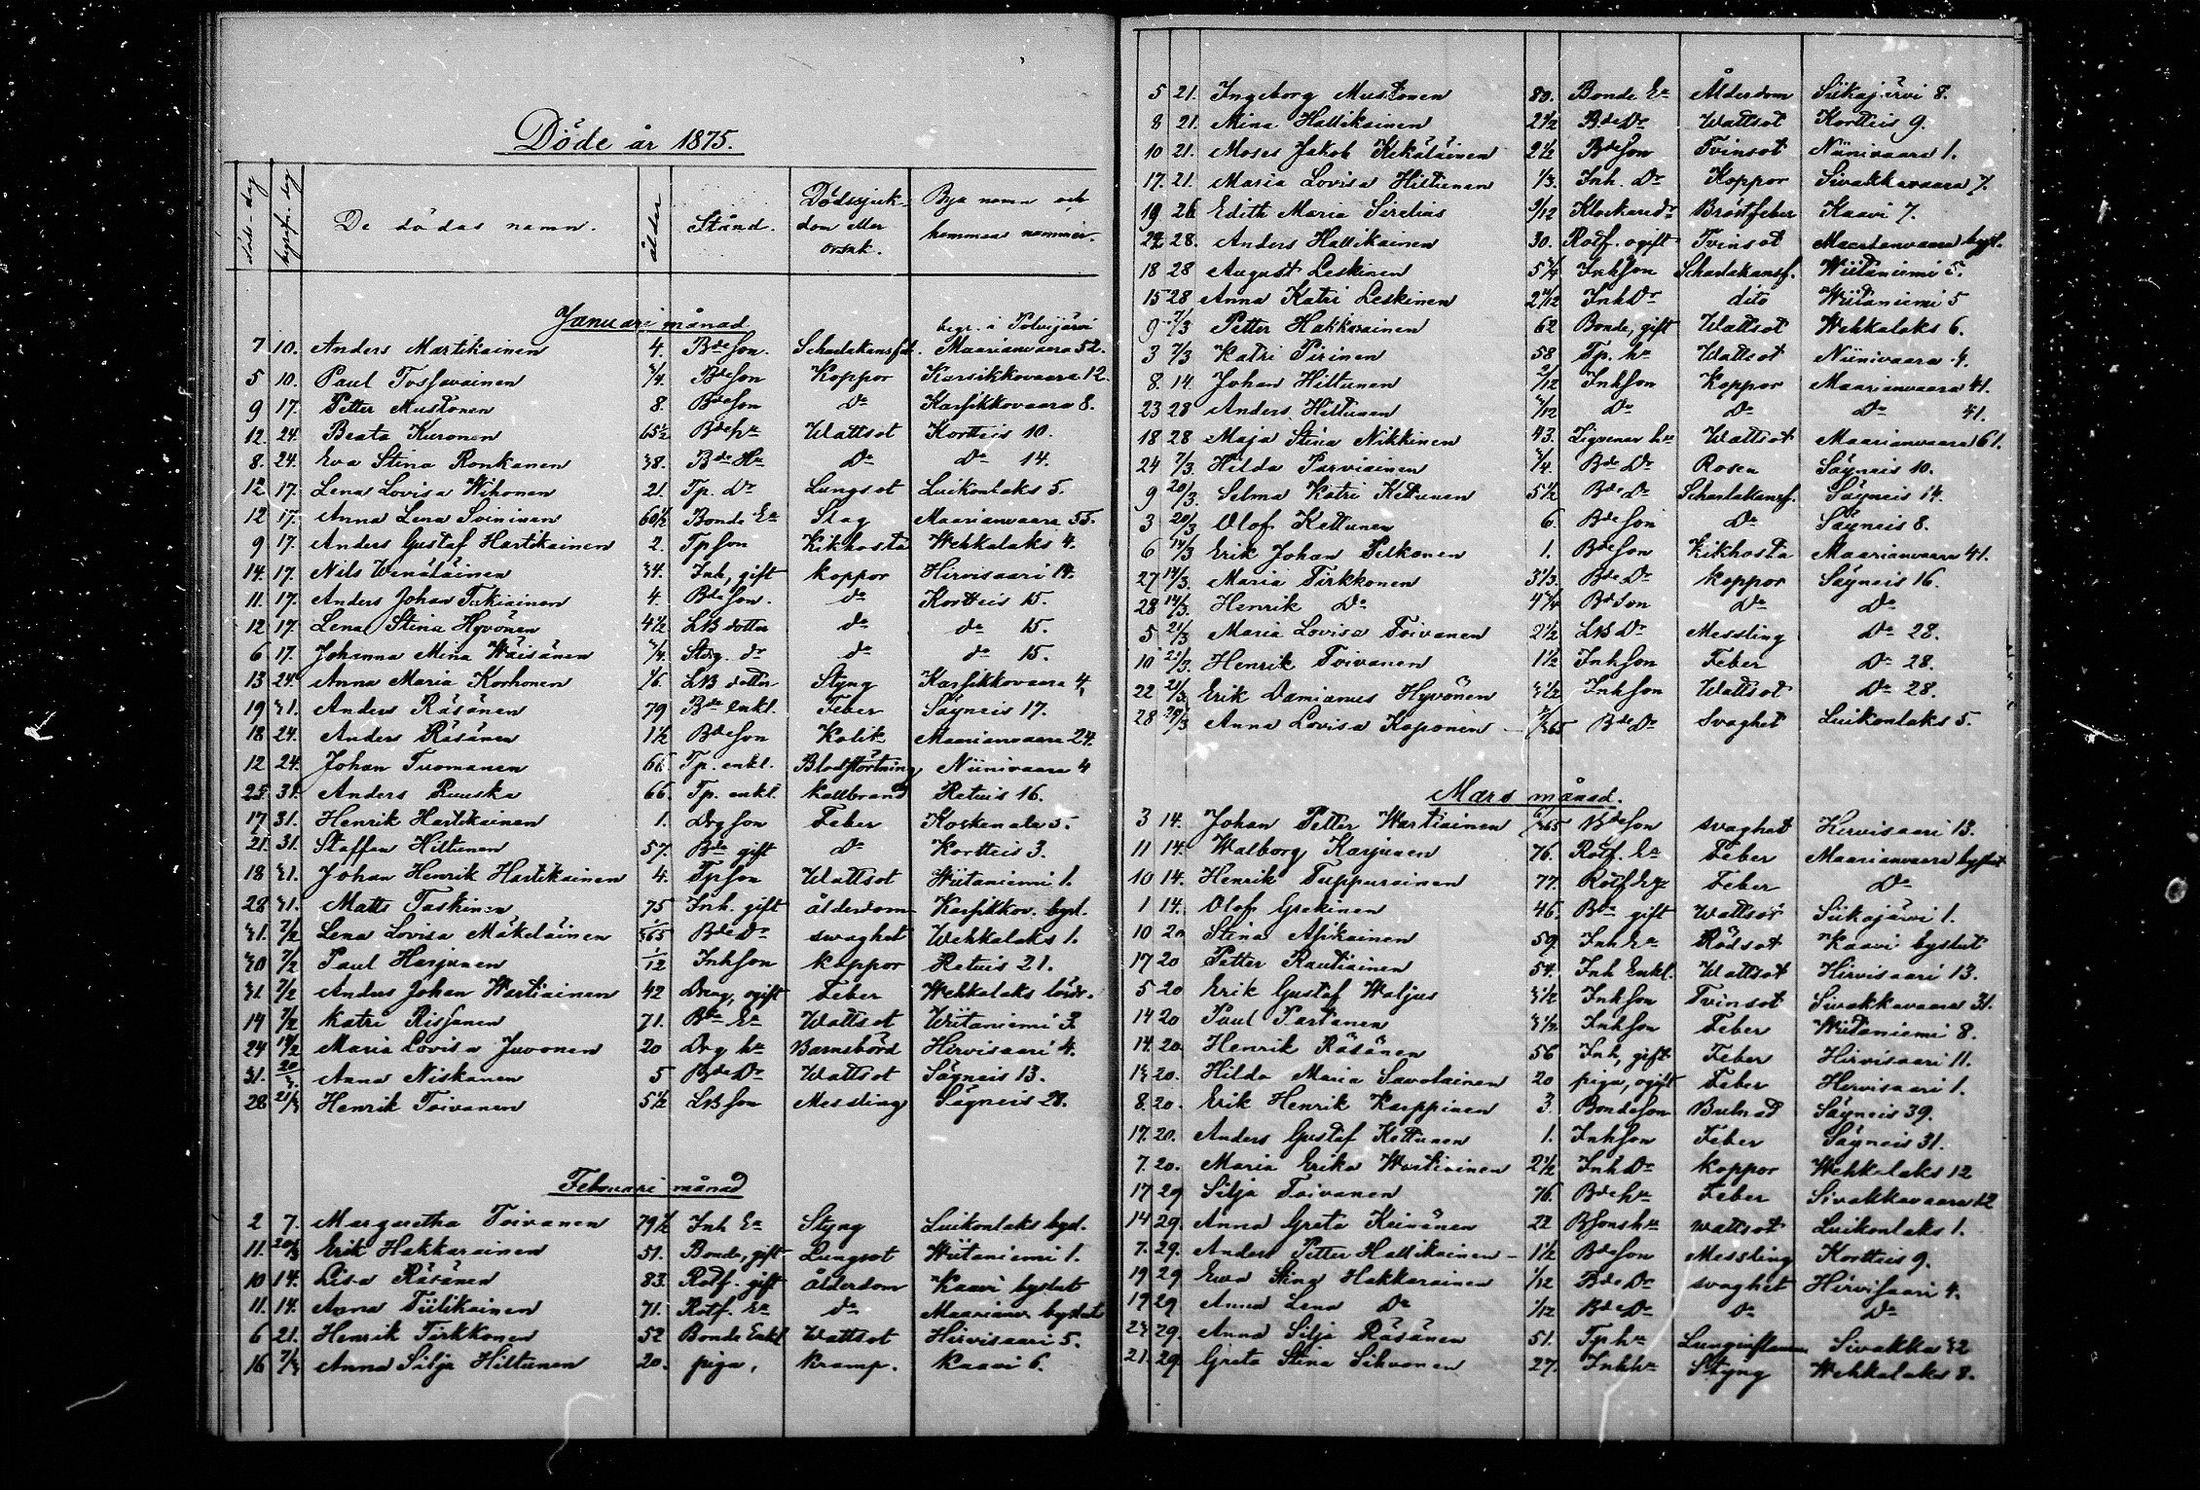 Döde år 1875.
döds-dag begrafn. dag De dödas namn. ålder Stånd. Dödssjuk-dom eller orsak. Bya namn och hemmans nummer.
Januari månad
begr. i Polvijärvi
7 10. Anders Martikainen 4. Bde Son. Scharlakansfeb. Maarianvaara 52.
5 10. Paul Tossavainen 3/4. Bde Son Koppor Karsikkovaara 12.
9 17. Petter Mustonen 8. Bde Son Do Karsikkovaara 8.
12 24. Beata Kuronen 65 1/2 Bde hu Wattsot Kortteis 10.
8. 24. Eva Stina Ronkanen 38. Bde Hu Do Do 14.
12 17. Lena Lovisa Wihonen 21. Tp. Dr Lungsot Luikonlaks 5.
12 17. Anna Lena Soininen 60 1/2 Bonde Ea Slag Maarianvaara 55.
9 17. Anders Gustaf Hartikainen 2. Tp Son Kikhosta Wehkalaks 4.
14. 17. Nils Wenäläinen 34. Inh, gift Koppor Hirvisaari 14.
11. 17. Anders Johan Tukiainen 4. Bde Son. do Kortteis 15.
12 17. Lena Stina Hyvönen 4 1/2 LB dotter do do 15.
6 17. Johanna Mina Wäisänen 3/4. Stdg. dr do do 15.
13 24. Anna Maria Korhonen 1/6. LB dotter Styng Karsikkovaara 4
19 31. Anders Räsänen 79 Bde enkl. Feber Säyneis 17.
18 24. Anders Räsänen 1 1/2 Bde Son Kolik Maarianvaara 24.
12 24. Johan Tuomanen 66. Tp. enkl. Blodstörtning Niinivaara 4
25 31. Anders Ruuska 66. Tp. enkl. Kallbrand Retuis 16.
17 31. Henrik Hartikainen 1. Drg Son Feber Koskenala 5.
21. 31. Staffan Hiltunen 57. Bde gift Do Kortteis 3.
18 31. Johan Henrik Hartikainen 4. Tp Son Wattsot Wiitaniemi 1.
28 31. Matts Taskinen 75 Inh. gift ålderdom Karsikkov. byst.
31. 7/2 Lena Lovisa Mäkeläinen 1/365 Bde Dr swaghet Wehkalaks 1.
30 7/2 Paul Harjunen 1/12 Inh Son Koppor Retuis 21.
31 7/2 Anders Johan Wartiainen 42 Dreng, ogift Feber Wehkalaks
14 7/2 Katri Rissanen 71. Bde Ea Wattsot Wiitaniemi 3.
24 14/2 Maria Lovisa Juvonen 20 Drg hu Barnsbörd Hirvisaari 4.
31. 20/3. Anna Niskanen 5 Bde Dr Wattsot Säyneis 13.
28 21/3 Henrik Toivanen 5 1/2 LB Son Messling Säyneis 28.
Februari månad
2 7. Margaretha Toivanen 79 1/2 Inh Ea Styng Luikonlaks byst.
11. 20/3 Erik Hakkarainen 51. Bonde, gift Lungsot Wiitaniemi 1.
10 14. Lisa Räsänen 83. Rotf. gift Ålderdom Kaavi bystut
11. 14. Anna Tiilikainen 71. Rotf. Ea do Maarianv. bystut
6 21. Henrik Tirkkonen 52 Bonde Enkl Wattsot Hirvisaari 5.
16 7/3 Anna Silja Hiltunen 20. piga, Kramp. Kaavi 6.
5 21. Ingeborg Mustonen 80. Bonde Ea Ålderdom Siikajärvi 8.
8 21. Mina Hallikainen 2 1/2 Bde Dr Wattsot Kortteis 9.
10 21. Moses Jakob Kekäläinen 2 1/2 Bde Son Tvinsot Niinivaara 1.
17. 21. Maria Lovisa Hiltunen 1/3. Inh. Dr Koppor Sivakkavaara 7.
19 26 Edith Maria Sirelius 9/12 Klockaredr Bröstfeber Kaavi 7.
22 28. Anders Hallikainen 30. Rotf. ogift Tvinsot Maarianvaara byst.
18 28 August Leskinen 5 3/4 Inh Son Scharlakansf. Wiitaniemi 5.
15 28 Anna Katri Leskinen 2 /12 Inh Dr dito Wiitaniemi 5
9 7/3 Petter Hakkarainen 62 Bonde, gift Wattsot Wehkalaks 6.
3 7/3 Katri Pirinen 58 Tp. hu Wattsot Niinivaara 4.
8. 14. Johan Hiltunen 2/12 Inh Son Koppor Maarianvaara 41.
23 28 Anders Hiltunen 3/12 Do Do Do 41.
18 28 Maja Stina Nikkinen 43. Zigenar hu Wattsot Maarianvaara 61.
24 7/3. Hilda Parviainen 3/4. Bde Dr Rosen Säyneis 10.
9 20/3. Selma Katri Kettunen 5 1/2 Bde Dr Scharlakansf. Säyneis 14.
3 20/3 Olof Kettunen 6. Bde Son Do Säyneis 8.
6 14/3 Erik Johan Pelkonen 1. Bde Son Kikhosta Maarianvaara 41.
27 14/3. Maria Tirkkonen 3 1/3. Bde Dr Koppor Säyneis 16.
28 14/3. Henrik Do 4 3/4 Bde Son Do Do
5 21/3 Maria Lovisa Toivanen 2 1/2 LB Dr Messling Do 28.
10 21/3. Henrik Toivanen 1 1/2 Inh Son Feber Do 28.
22 21/3. Erik Damianus Hyvönen 3 1/2 Inh Son Wattsot Do 28.
28 29/3 Anna Lovisa Koponen – /365 Bde Dr Svaghet Luikonlaks 5.
Mars månad.
3 14. Johan Petter Wartiainen 6/365 Bde Son svaghet Hirvisaari 13.
11 14. Walborg Karjunen 76. Rotf. Ea Feber Maarianvaara bystut
10 14. Henrik Tuppurainen 77. Rotf drg Feber Do
1 14. Olof Grekinen 46. Bde gift Wattsot Siikajärvi 1.
10 20 Stina Asikainen 59. Inh Ea Rödsot Kaavi bystut
17 20 Petter Rautiainen 54. Inh Enkl. Wattsot Hirvisaari 13.
5 20 Erik Gustaf Waljus 3 1/2 Inh Son Tvinsot Sivakkavaara 31.
14 20 Paul Partanen 3 1/2 Inh Son Feber Wiitaniemi 8.
14. 20. Henrik Räsänen 56 Inh, gift Feber Hirvisaari 11.
13 20. Hilda Maria Savolainen 20 piga, ogift Feber Hirvisaari 1.
8. 20. Erik Henrik Karppinen 3. Bonde Son Bulnad Säyneis 39.
17. 20. Anders Gustaf Kettunen 1. Inh Son Feber Säyneis 31.
7. 20. Maria Erika Wartiainen 2 1/2 Inh Dr Koppor Wehkalaks 12
17 29 Silja Toivanen 76. Bde hu Feber Sivakkavaara 12
14 29. Anna Greta Keinänen 22 Bsons hu Wattsot Luikonlaks 1.
7. 29. Anders Petter Hallikainen – 1 1/2 Bde Son Messling Kortteis 9.
19 29 Ewa Stina Hakkarainen 1/12 Bde Dr svaghet Hirvisaari 4.
19 29 Anna Lena Do 1/12 Bde Dr Do Do
23 29. Anna Silja Räsänen 51. Tp hu Lunginflamm Sivakka 32
21. 29. Greta Stina Sihvonen 27. Inh hu Styng Wehkalaks 8.